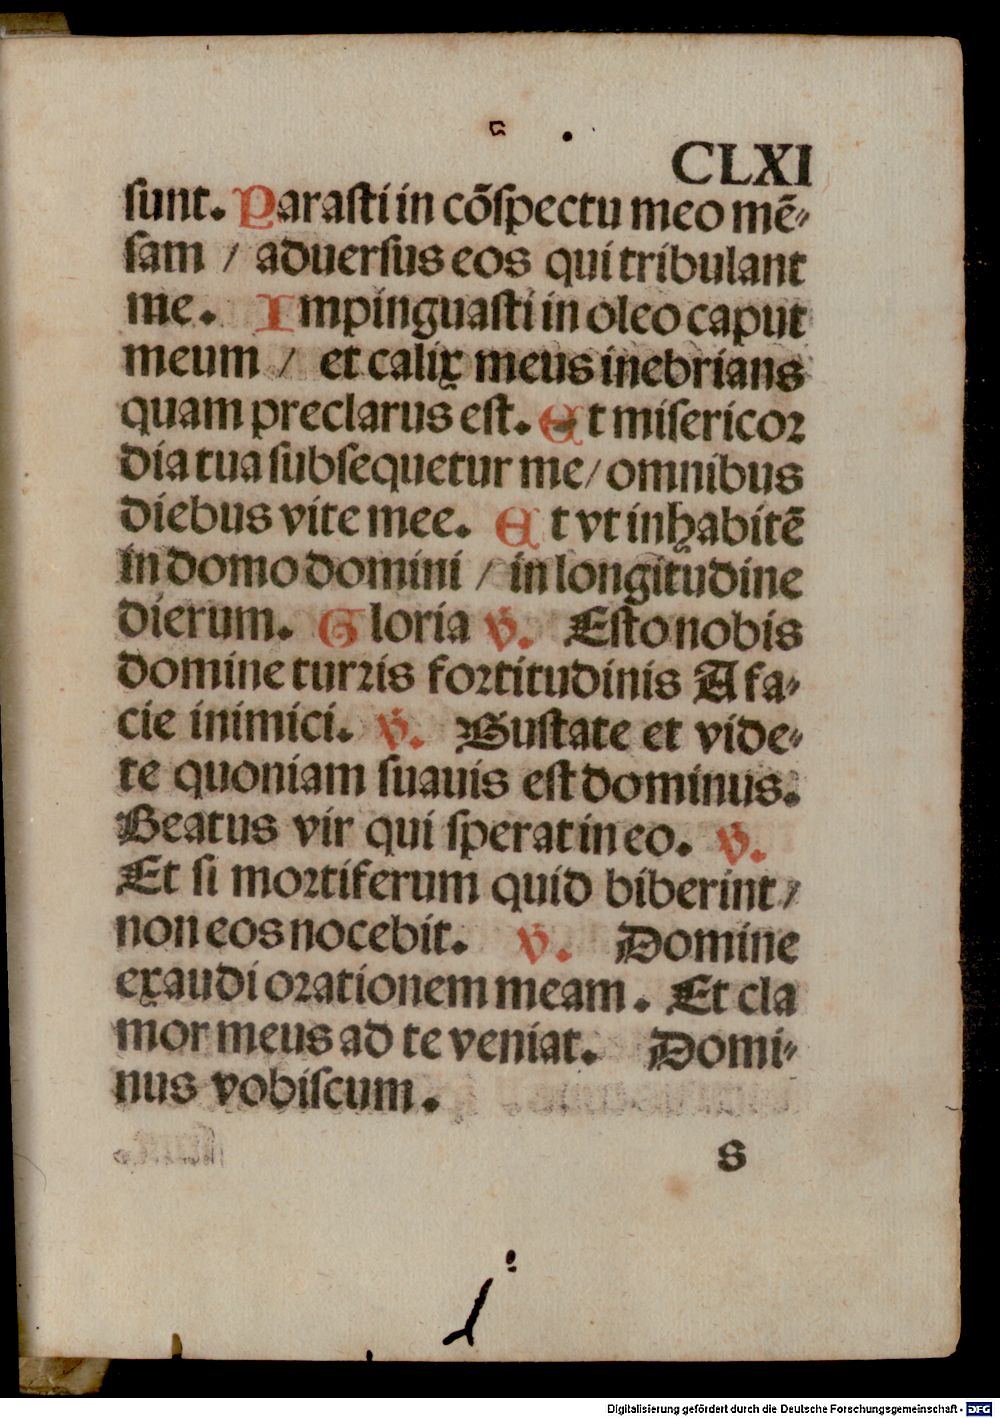 CLXI
ſunt. Paraſti in cõſpectu meo mẽ⸗
ſam / aduerſus eos qui tribulant
me. Impinguaſti in oleo caput
meum / et calix meus inebrians
quam preclarus eſt. Et miſericoꝛ
dia tua ſubſequetur me / omnibus
diebus vite mee. Et vt inhabitẽ
in domo domini / in longitudine
dierum. Gloria V̄. Eſto nobis
domine turꝛis foꝛtitudinis A fa⸗
cie inimici. V̄. Guſtate et vide⸗
te quoniam ſuauis eſt dominus.
Beatus vir qui ſperat in eo. V̄.
Et ſi moꝛtiferum quid biberint /
non eos nocebit. V̄. Domine
exaudi oꝛationem meam. Et cla
mor meus ad te veniat. Domi⸗
nus vobiſcum.
s
Digitalisierung gefördert durch die Deutsche Forschungsgemeinschaft - DFG